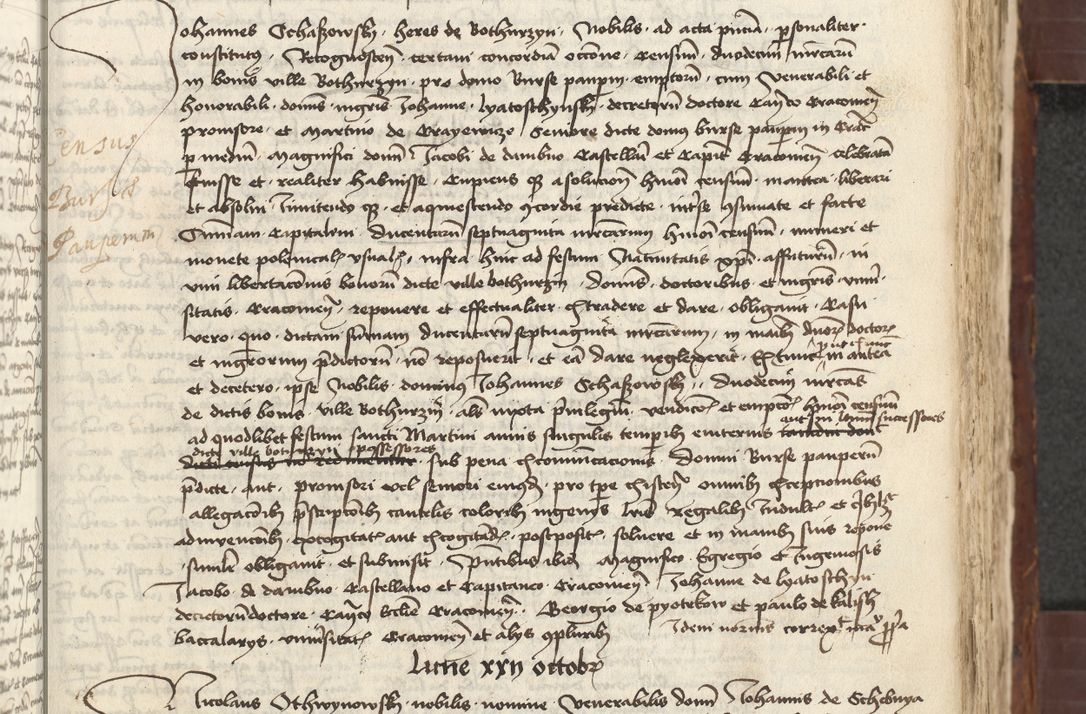 Johannes Schaszowsky heres de Bothurzyn Nobilis ad acta pñcia psonaliter
constitutus Recognosceñ certam concordiã occõne censuum duodecim mrcarũ
in bonis ville Bothurzyn pro domo Burse paupm emptorũ cum Venerabili et
honorabili domis mgris Johanne Lyatoschynsky decretorũ doctore Cañco Cracovieñ
promsore et Martino de Crayewicze Seniore dicte domus burse paupm in Crac
p mediũ Magnifici domi Jacobi de dambno Castellañ et Capit Cracovieñ celebratã
fuisse et realiter habuisse Cupiens qz a soluciõ hmõi censuũ in antea liberari
et absolvi Innitendo qz et aquiescendo concordie predicte int se consumate et facte
Summam capitalem ducentarũ septuaginta mrcarum hmõi censuũ numeri et
monete polonicalis usualis infra hinc ad festum Nativitatis xpi affuturũ in
vim libertacionis bonorũ dicte ville bothurzyn Domis doctoribus et mgris univ
sitatis Cracovieñ reponere et effectualiter extradere et dare obligavit Casu
vero quo dictam summam ducentarũ septuaginta mrcarum in maibus duorũ doctorũ
et mgrorum pdictorũ nõ reposuerit et eã dare neglexerit Extunc in antea
et decetero ipse Nobilis dominus Johannes Schaszowsky duodecim mrcas
de dictis bonis ville Bothurzyn als iuxta privilegiũ vendicõis et empcõis hmõi censuum
ad quodlibet festum sancti Martini annis singulis tempibus eviternis successores
dicte ville bothurzyn possessores
sub pena excomunicacionis Domui Burse pauperũ
pdicte aut promsori vel seniori eiusdem pro tpe existeñ omnibus exceptionibus
allegacõibus pscriptõibus cautelis coloribus ingenijs lris regalibus Indultis et
adinvencõibus excogitatis aut excogitandis postpositis solvere et in manibus suis repone
similr obligavit et submisit Pñtibus ibidem Magnifico Egregio et Ingeniosis
Jacobo de dambno Castellano et Capitaneo Cracovieñ Johanne de Lyatoschyn
decretorũ doctore Cañco Ecclie Cracovieñ Georgio de pyotrkow et paulo de kalisch
baccalarijs universitatis Cracovieñ et alijs conpluribus Idem notarius correxit
Lune xxij octobris
Nicolaus Othwynowsky nobilis nomine Venerabilis domi Johannis de Schebnya
Census
Bursae
Pauperum